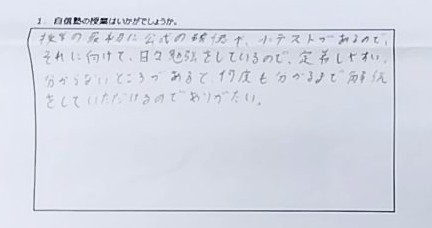 1. 自信塾の授業はいかがでしょうか。
授業の最初に公式の確認や、小テストがあるので、
それに向けて、日々勉強をしているので、定着しやすい。
分からないところがあると、何度も分かるまで解説
をしていただけるのでありがたい。